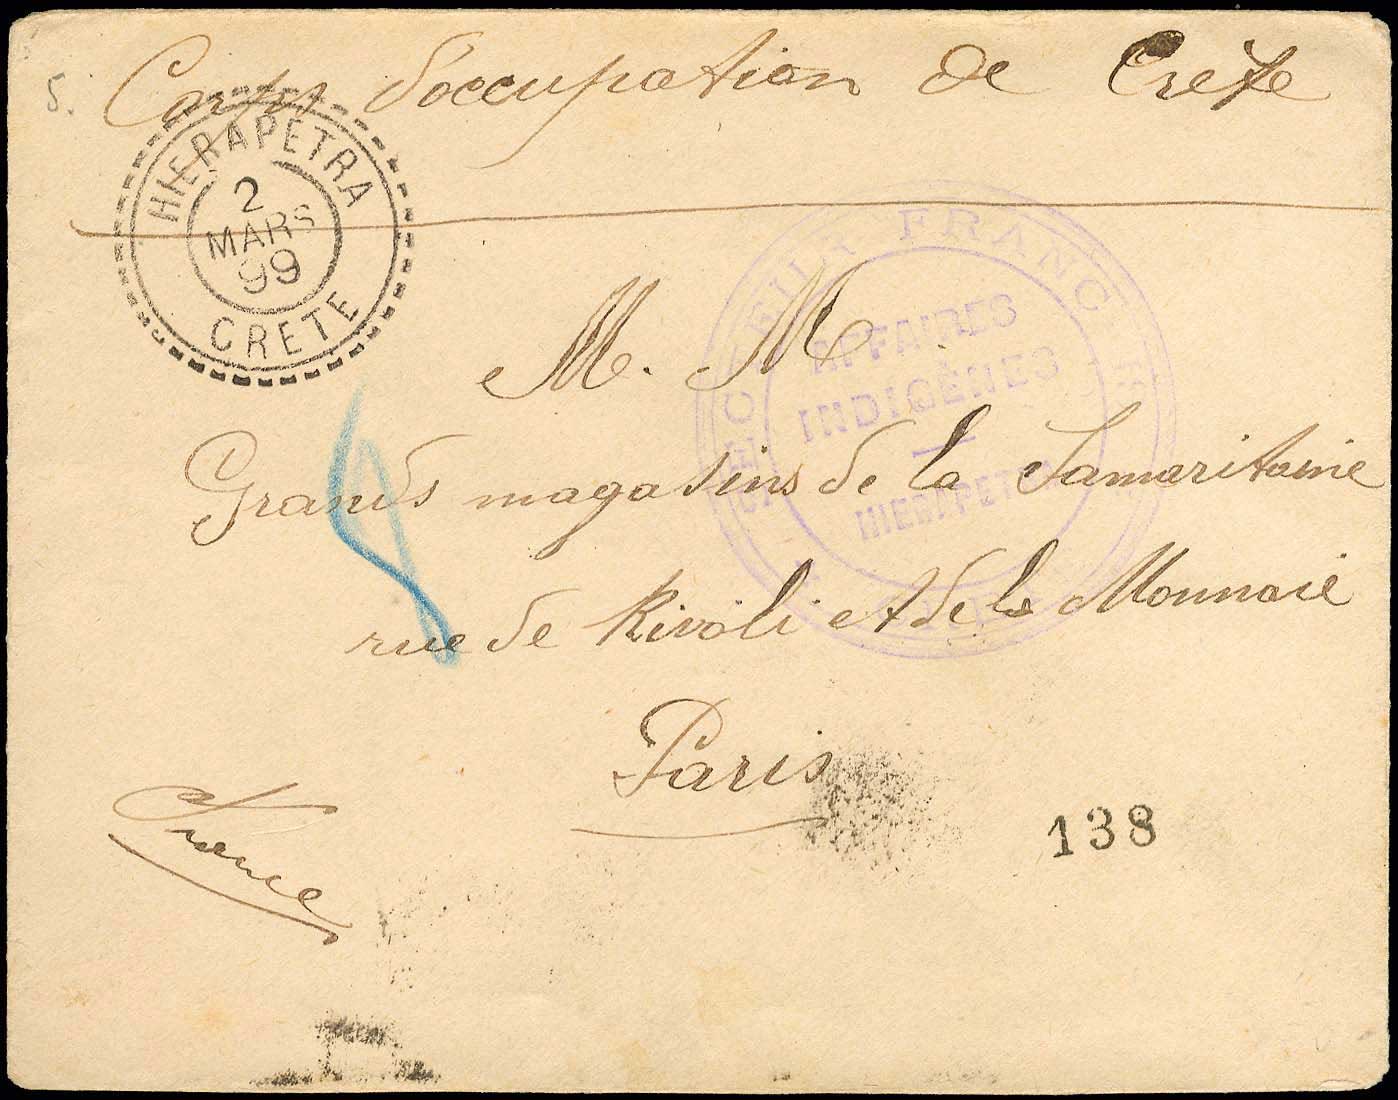 5.
Corps d'occupation de Crète
HIERAPETRA
2
MARS
99
CRETE
FRANC
AFFAIRES
INDIGÈNES
HIERAPETRA
M. M
Grands magasins de la Samaritaine
rue de Rivoli et de la Monnaie
Paris
138
France